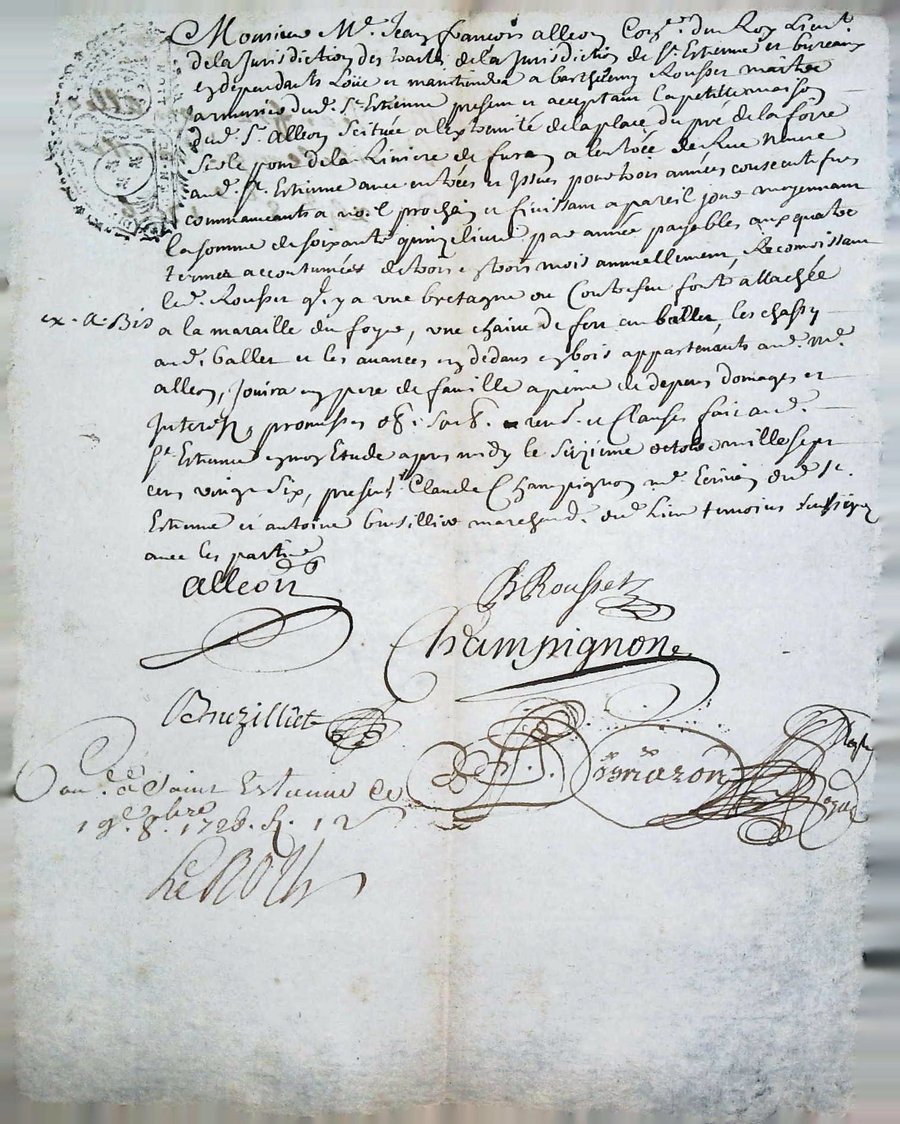 Monsieur Me. Jean françois alleon Coner. du Roy Lieut.
de la Jurisdiction des traites de la Jurisdiction de St. Estienne et bureaux
en dependants Loüe et maintiendra a barthelemy Rousset maitre
armurier dud. St. Estienne present et acceptant La petitte maison
dud. Sr. Alleon Scituée a l'extremité de la place du pré de la foire
de la Riviere de furan a l'entrée de Rue neuve
aud. St. Estienne avec entrées et Issues pour trois années consecutifves
commencants a noel prochain et finissam a pareil jour moyennant
la somme de soixante quinze livres par année payables aux quatre
termes accoutumées de trois en trois mois annuellement, Reconoissam
led. Rousset q. y a une bretagne ou Contrefeu fort attachée
a la muraille du foyer, une chaine de fer en
aud. et les avances en dedans en bois appartenants aud. Me.
alleon, Jouira en pere de famille a peine de depens domages et
Interets, promesses et Clauses fait aud.
St. Estienne en mon Etude apres midy le Seizieme octobre mille sept
cens vingt Six, presents Claude Champignon me. Ecrivain dud. St.
Estienne et antoine marchand dud. Lieu temoins soussignez
avec les parties
alleon
B Rousset
Champignon
Buzilliet
a Saint Estienne Le
19e. 8bre 1726. R. 12 s